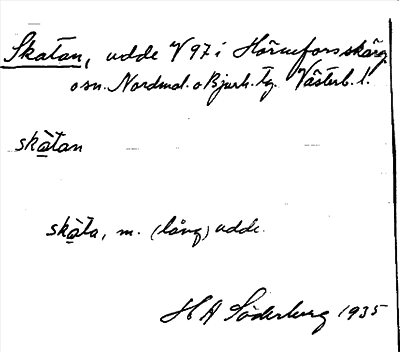 Skatan, udde V 97 i Hörneforsskärg.
osn. Nordmal. o Bjurh. tg. Västerb. l.
skàtan
skàta, m. (lång) udde.
H A Söderberg 1935